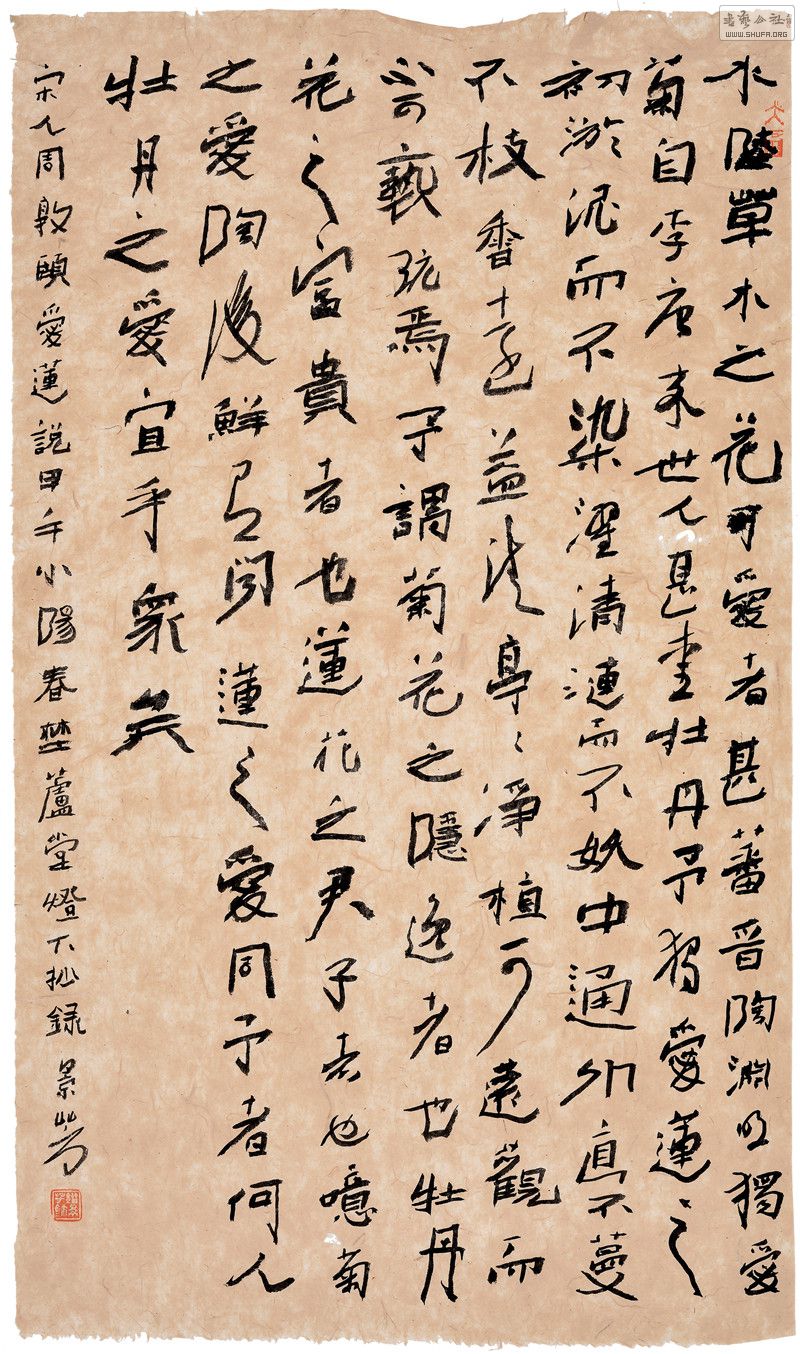 水陸草木之花可愛者甚蕃晋陶淵明獨愛
菊自李唐来世人甚愛牡丹予独愛蓮之
初淤泥而不染濯清漣而不妖中通外直不蔓
不枝香遠益清亭〻淨植可遠觀而
不可褻玩焉予謂菊花之隱逸者也牡丹
花之富貴者也蓮花之君子者也噫菊
之愛陶後鮮有聞蓮之愛同予者何人
牡丹之愛宜乎衆矣
宋人周敦頤愛蓮説甲午小陽春埜蘆堂燈下抄録 景
書藝公社
WWW.SHUFA.ORG